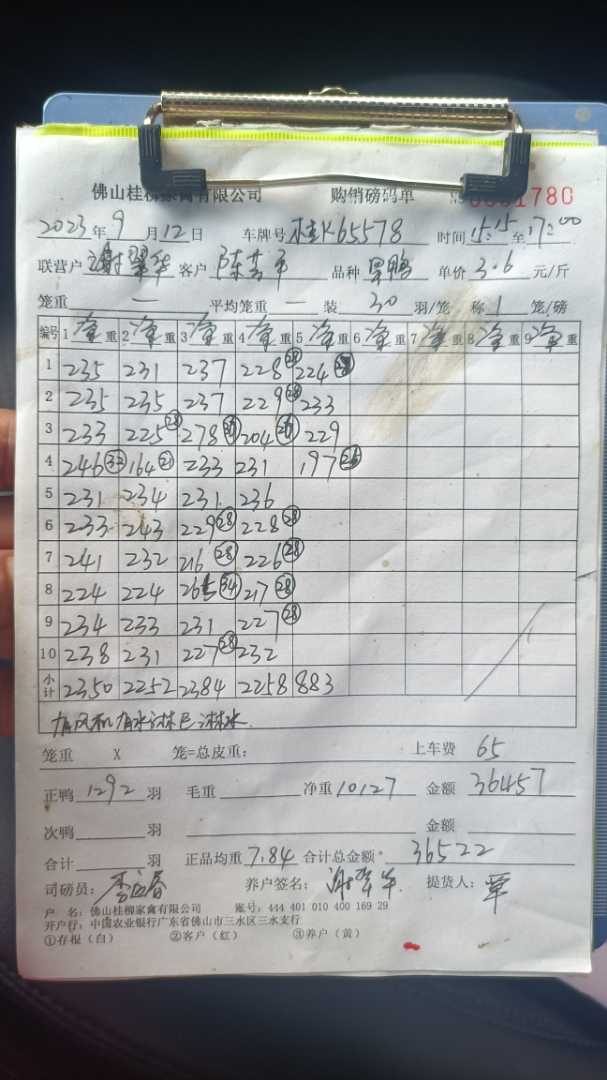 佛山桂柳家禽有限公司 购销磅码单 1780
2023年9月12日 车牌号 桂K65578 时间 15:15至17:00
联营户 谢翠华 客户 品种 单价 3.6 元/斤
笼重 — 平均笼重 — 装 30 羽/笼 称 1 笼/磅
编号 1 净重 2 净重 3 净重 4 净重 5 净重 6 净重 7 净重 8 净重 9 净重
1 235 231 237 228(28) 224(28)
2 235 235 237 229(28) 233
3 233 225(28) 278 204 229
4 246(32) 164(21) 233 231 197(26)
5 231 234 231 236
6 233 243 229(28) 228(28)
7 241 232 216(28) 226(28)
8 224 224 265(34) 217(28)
9 234 233 231 227(28)
10 238 231 227(28) 232
小计 2350 2252 2384 2258 883
有风机有水淋已淋水
笼重 X 笼=总皮重: 上车费 65
正鸭 1292 羽 毛重 净重 10127 金额 36457
次鸭 羽 金额
合计 羽 正品均重 7.84 合计总金额 36522
司磅员: 养户签名: 提货人: 覃
户 名: 佛山桂柳家禽有限公司 账号: 444 401 010 400 169 29
开户行: 中国农业银行广东省佛山市三水区三水支行
①存根(白) ②客户(红) ③养户(黄)